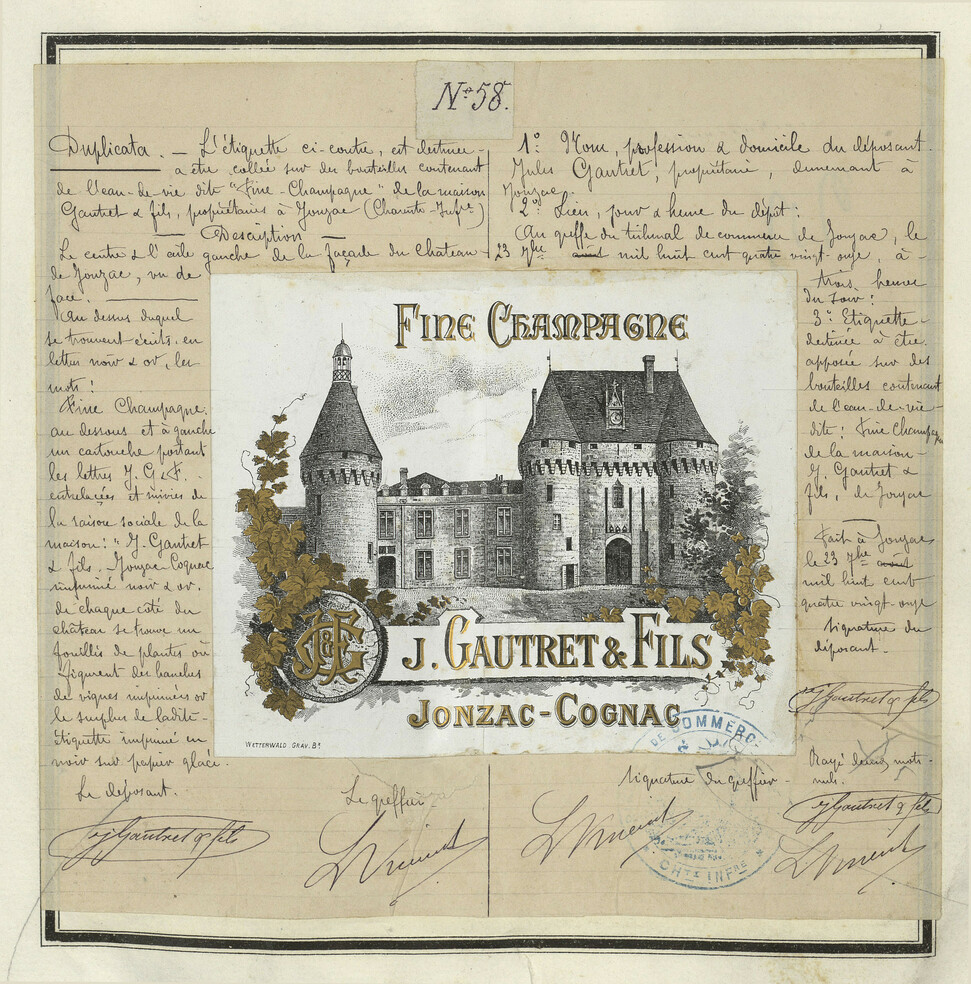 N° 58.
Duplicata. — L'étiquette ci-contre, est destinée
a être collée sur des bouteilles contenant
de l'eau-de-vie dite "Fine-Champagne" de la maison
Gautret & fils, propriétaires à Jonzac (Charente-Infre)
— Description —
Le centre & l'aile gauche de la façade du Château
de Jonzac, vu de
face.
Au dessus duquel
se trouvent écrits, en
lettres noir & or, les
mots :
Fine Champagne.
au dessous et à gauche
un cartouche portant
les lettres J. G & F.
entrelacées et suivies de
la raison sociale de la
maison : " J. Gautret
& fils. Jonzac-Cognac
imprimé noir & or.
de chaque coté du
château se trouve un
fouillis de plantes où
figurent des branches
de vignes imprimées or
le surplus de ladite
étiquette imprimé en
noir sur papier glacé.
Le déposant.
J Gautret & fils
Le greffier
1° Nom, profession & domicile du déposant.
Jules Gautret, propriétaire, demeurant à
Jonzac.
2° Lieu, jour & heure du dépôt :
Au greffe du tribunal de commerce de Jonzac, le
23 7bre août mil huit cent quatre vingt-onze, à
trois heures
du soir :
3° Etiquette
destinée à être
apposée sur des
bouteilles contenant
de l'eau-de-vie
dite : Fine Champagne
de la maison
J. Gautret &
fils, de Jonzac
Fait à Jonzac
le 23 7bre août
mil huit cent
quatre vingt-onze
Signature du
déposant.
J Gautret & fils
Signature du greffier
Rayé deux mots
nuls.
J Gautret & fils
FINE CHAMPAGNE
JG&F
J. GAUTRET & FILS
JONZAC-COGNAC
WETTERWALD. GRAV. Bx
DE COMMERC
CHTE INFRE